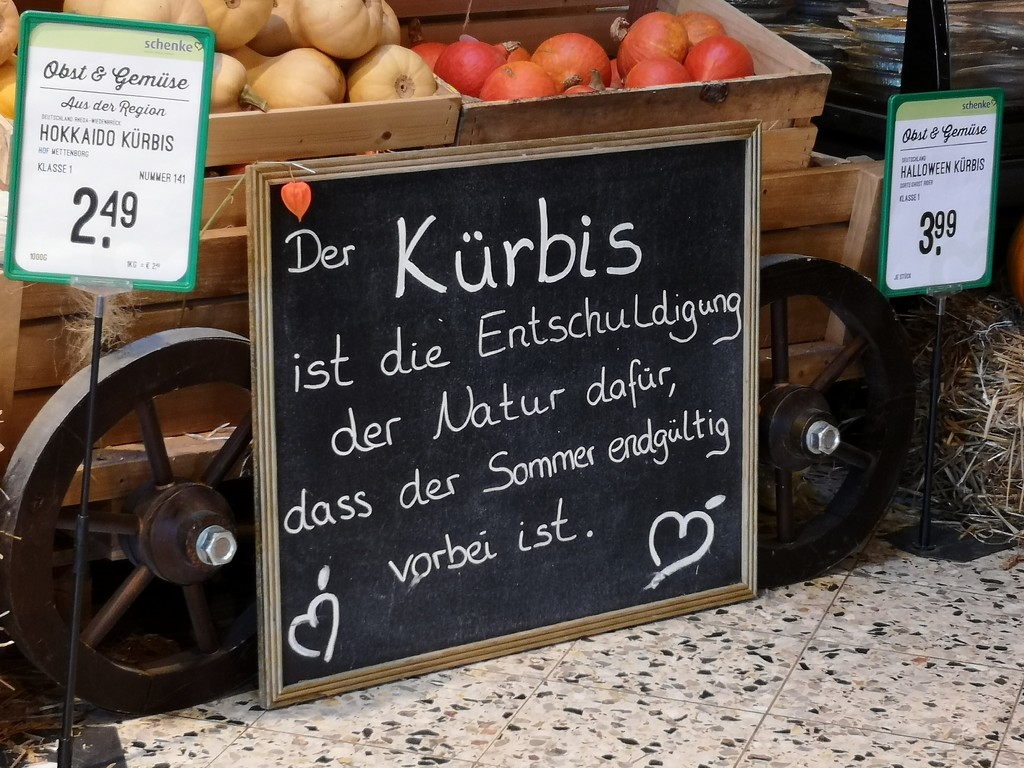 schenke
Obst & Gemüse
Aus der Region
DEUTSCHLAND RHEDA-WIEDENBRÜCK
HOKKAIDO KÜRBIS
HOF METTENBORG
KLASSE 1
NUMMER 141
2.49
1000G
1KG = € 2.49
Der Kürbis
ist die Entschuldigung
der Natur dafür,
dass der Sommer endgültig
vorbei ist.
schenke
Obst & Gemüse
DEUTSCHLAND
HALLOWEEN KÜRBIS
KLASSE 1
3.99
JE STÜCK